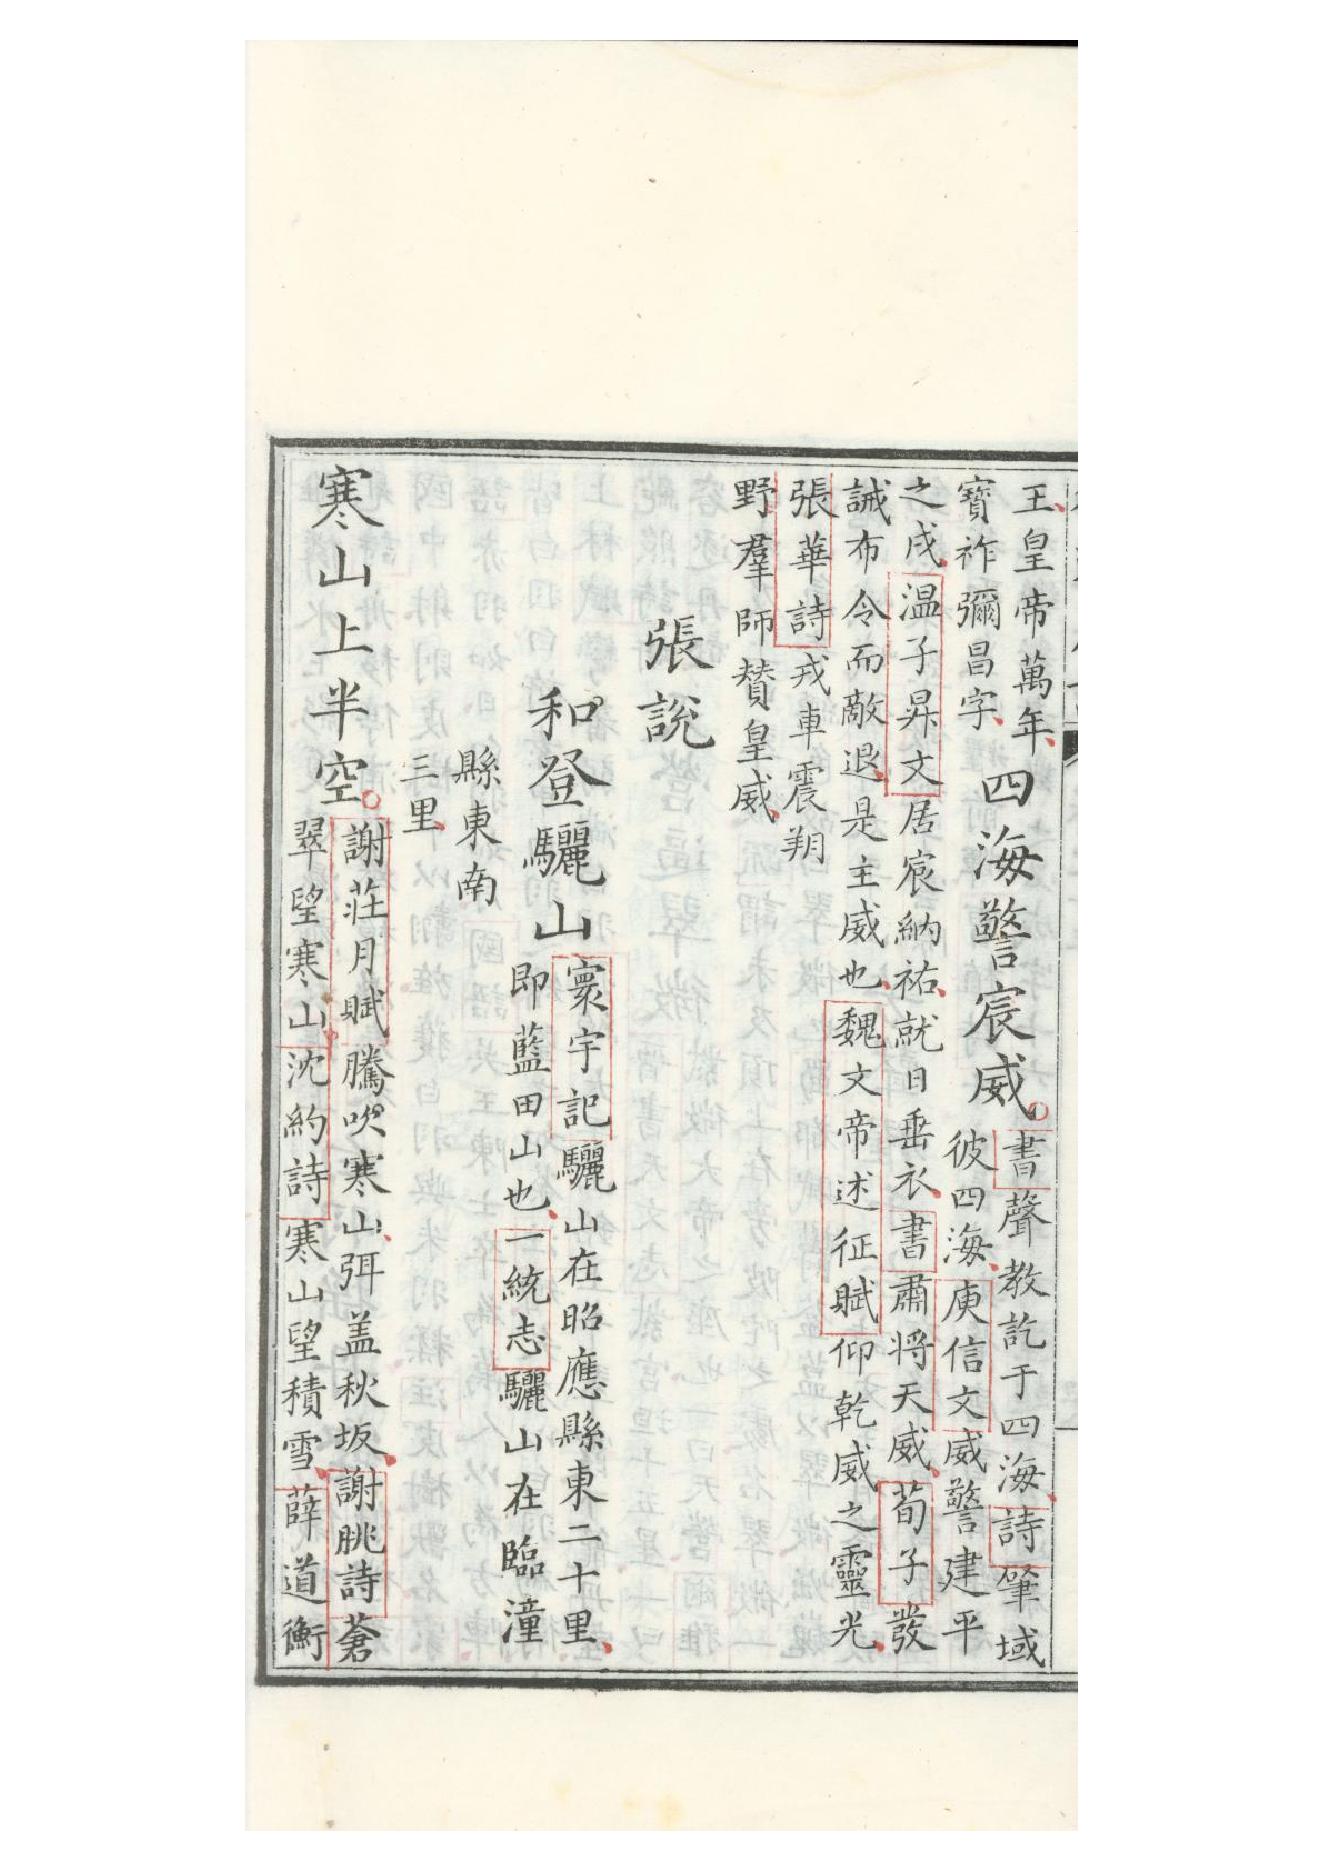 王皇帝萬年
寶祚彌昌字
四海警宸威
書聲教訖于四海詩肇域
彼四海庾信文威警建平
之戍温子昇文居宸納祐就日垂衣書肅將天威荀子發
誡布令而敵退是主威也魏文帝述征賦仰乾威之靈光
張華詩戎車震朔
野羣師賛皇威
張說
和登驪山
寰宇記驪山在昭應縣東二十里
即藍田山也一統志驪山在臨潼
縣東南
三里
寒山上半空
謝莊月賦騰吹寒山弭盖秋坂謝朓詩蒼
翠望寒山沈約詩寒山望積雪薛道衡